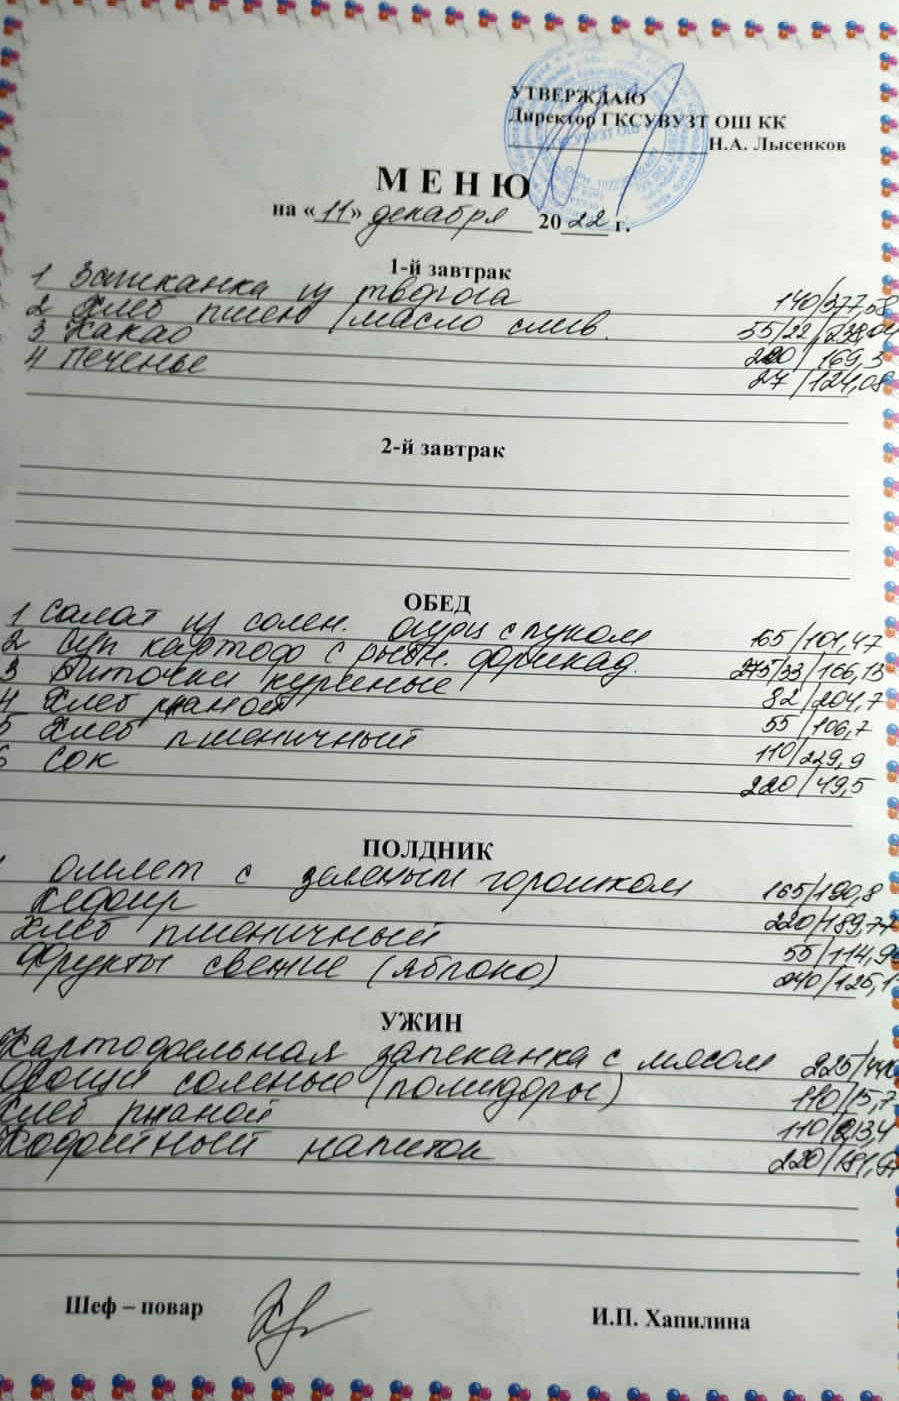 УТВЕРЖДАЮ
Директор ГКСУВУЗТ ОШ КК
Н.А. Лысенков
МЕНЮ
на «11» декабря 2022 г.
1-й завтрак
1 Запеканка из творога 140/377,58
2 Хлеб пшен /масло слив. 55/22/
3 Какао 220/169,3
4 Печенье 27/124,08
2-й завтрак
ОБЕД
1 Салат из солен. огурц с луком 165/101,47
2 Суп картоф с рыбн. фрикад. 275/33/166,13
3 Биточки куриные 82/204,7
4 Хлеб ржаной 55/106,7
5 Хлеб пшеничный 110/229,9
6 Сок 220/49,5
ПОЛДНИК
Омлет с зеленым горошком 165/190,8
Кефир 220/189,77
Хлеб пшеничный 55/114,9
Фрукты свежие (яблоко) 240/125,1
УЖИН
Картофельная запеканка с мясом 225/
Овощи соленые (помидоры) 110/15,7
Хлеб ржаной 110/213,4
Кофейный напиток 220/
Шеф – повар И.П. Хапилина